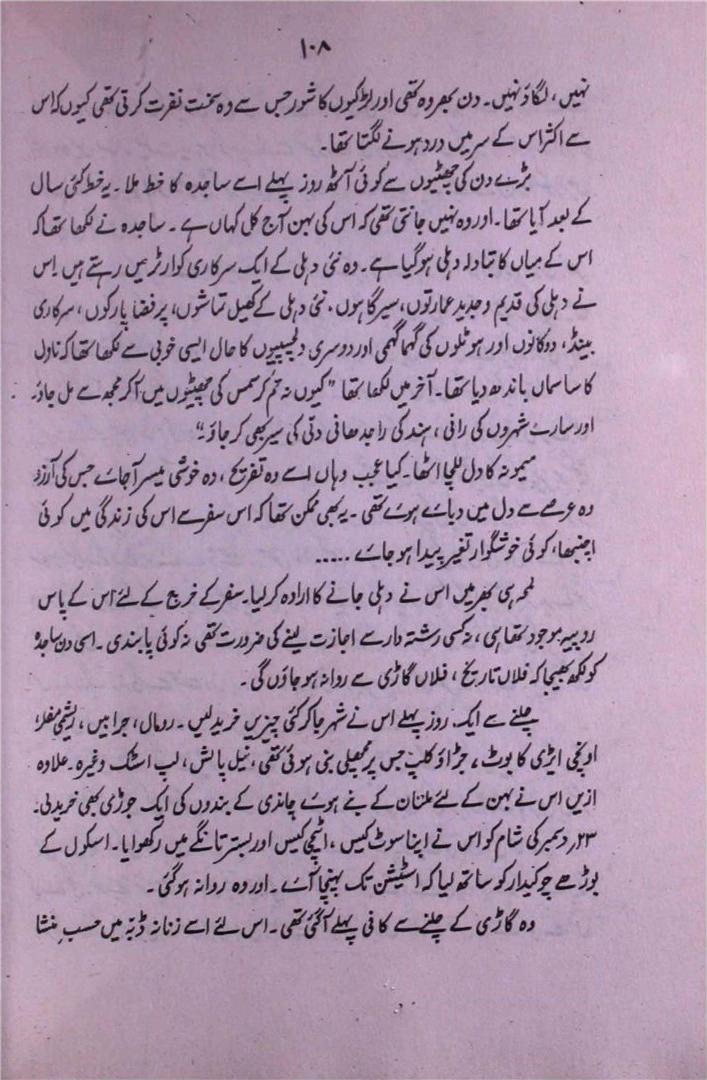 ۱۰۸
نہیں، لگاؤ نہیں۔ دن بھر وہ تھی اور لڑکیوں کا شور جس سے وہ سخت نفرت کرتی تھی کیوں کہ اس
سے اکثر اس کے سر میں درد ہونے لگتا تھا۔
بڑے دن کی چھٹیوں سے کوئی آٹھ روز پہلے اسے ساجدہ کا خط ملا۔ یہ خط کئی سال
کے بعد آیا تھا۔ اور وہ نہیں جانتی تھی کہ اس کی بہن آج کل کہاں ہے۔ ساجدہ نے لکھا تھا کہ
اس کے میاں کا تبادلہ دہلی ہو گیا ہے۔ وہ نئی دہلی کے ایک سرکاری کوارٹر میں رہتے ہیں۔ اس
نے دہلی کی قدیم و جدید عمارتوں، سیرگاہوں، نئی دہلی کے کھیل تماشوں، پرفضا پارکوں، سرکاری
بینڈ، دوکانوں اور ہوٹلوں کی گہما گہمی اور دوسری دلچسپیوں کا حال ایسی خوبی سے لکھا تھا کہ ناول
کا سا سماں باندھ دیا تھا۔ آخر میں لکھا تھا "کیوں نہ تم کرسمس کی چھٹیوں میں آکر مجھ سے مل جاؤ۔
اور سارے شہروں کی رانی، ہند کی راجدھانی دلّی کی سیر بھی کر جاؤ۔"
میمونہ کا دل للچا اٹھا۔ کیا عجب وہاں اسے وہ تفریح، وہ خوشی میسر آجائے جس کی آرزو
وہ عرصے سے دل میں دبائے ہوئے تھی۔ یہ بھی ممکن تھا کہ اس سفر سے اس کی زندگی میں کوئی
اچنبھا، کوئی خوشگوار تغیر پیدا ہو جائے .....
لمحہ ہی بھر میں اس نے دہلی جانے کا ارادہ کر لیا۔ سفر کے خرچ کے لئے اس کے پاس
روپیہ موجود تھا ہی، نہ کسی رشتہ دار سے اجازت لینے کی ضرورت تھی نہ کوئی پابندی۔ اسی دن ساجدہ
کو لکھ بھیجا کہ فلاں تاریخ، فلاں گاڑی سے روانہ ہو جاؤں گی۔
چلنے سے ایک روز پہلے اس نے شہر جا کر کئی چیزیں خرید لیں۔ رومال، جرابیں، ریشمی مفلر،
اونچی ایڑی کا بوٹ، جڑاؤ کلپ جس پر مچھلی بنی ہوئی تھی، نیل پالش، لپ اسٹک وغیرہ۔ علاوہ
ازیں اس نے بہن کے لئے ملتان کے بنے ہوئے چاندی کے بندوں کی ایک جوڑی بھی خرید لی۔
۲۳ر دسمبر کی شام کو اس نے اپنا سوٹ کیس، اٹیچی کیس اور بستر تانگے میں رکھوایا۔ اسکول کے
بوڑھے چوکیدار کو ساتھ لیا کہ اسٹیشن تک پہنچا آئے۔ اور وہ روانہ ہوگئی۔
وہ گاڑی کے چلنے سے کافی پہلے آگئی تھی۔ اس لئے اسے زنانہ ڈبّہ میں حسبِ منشا